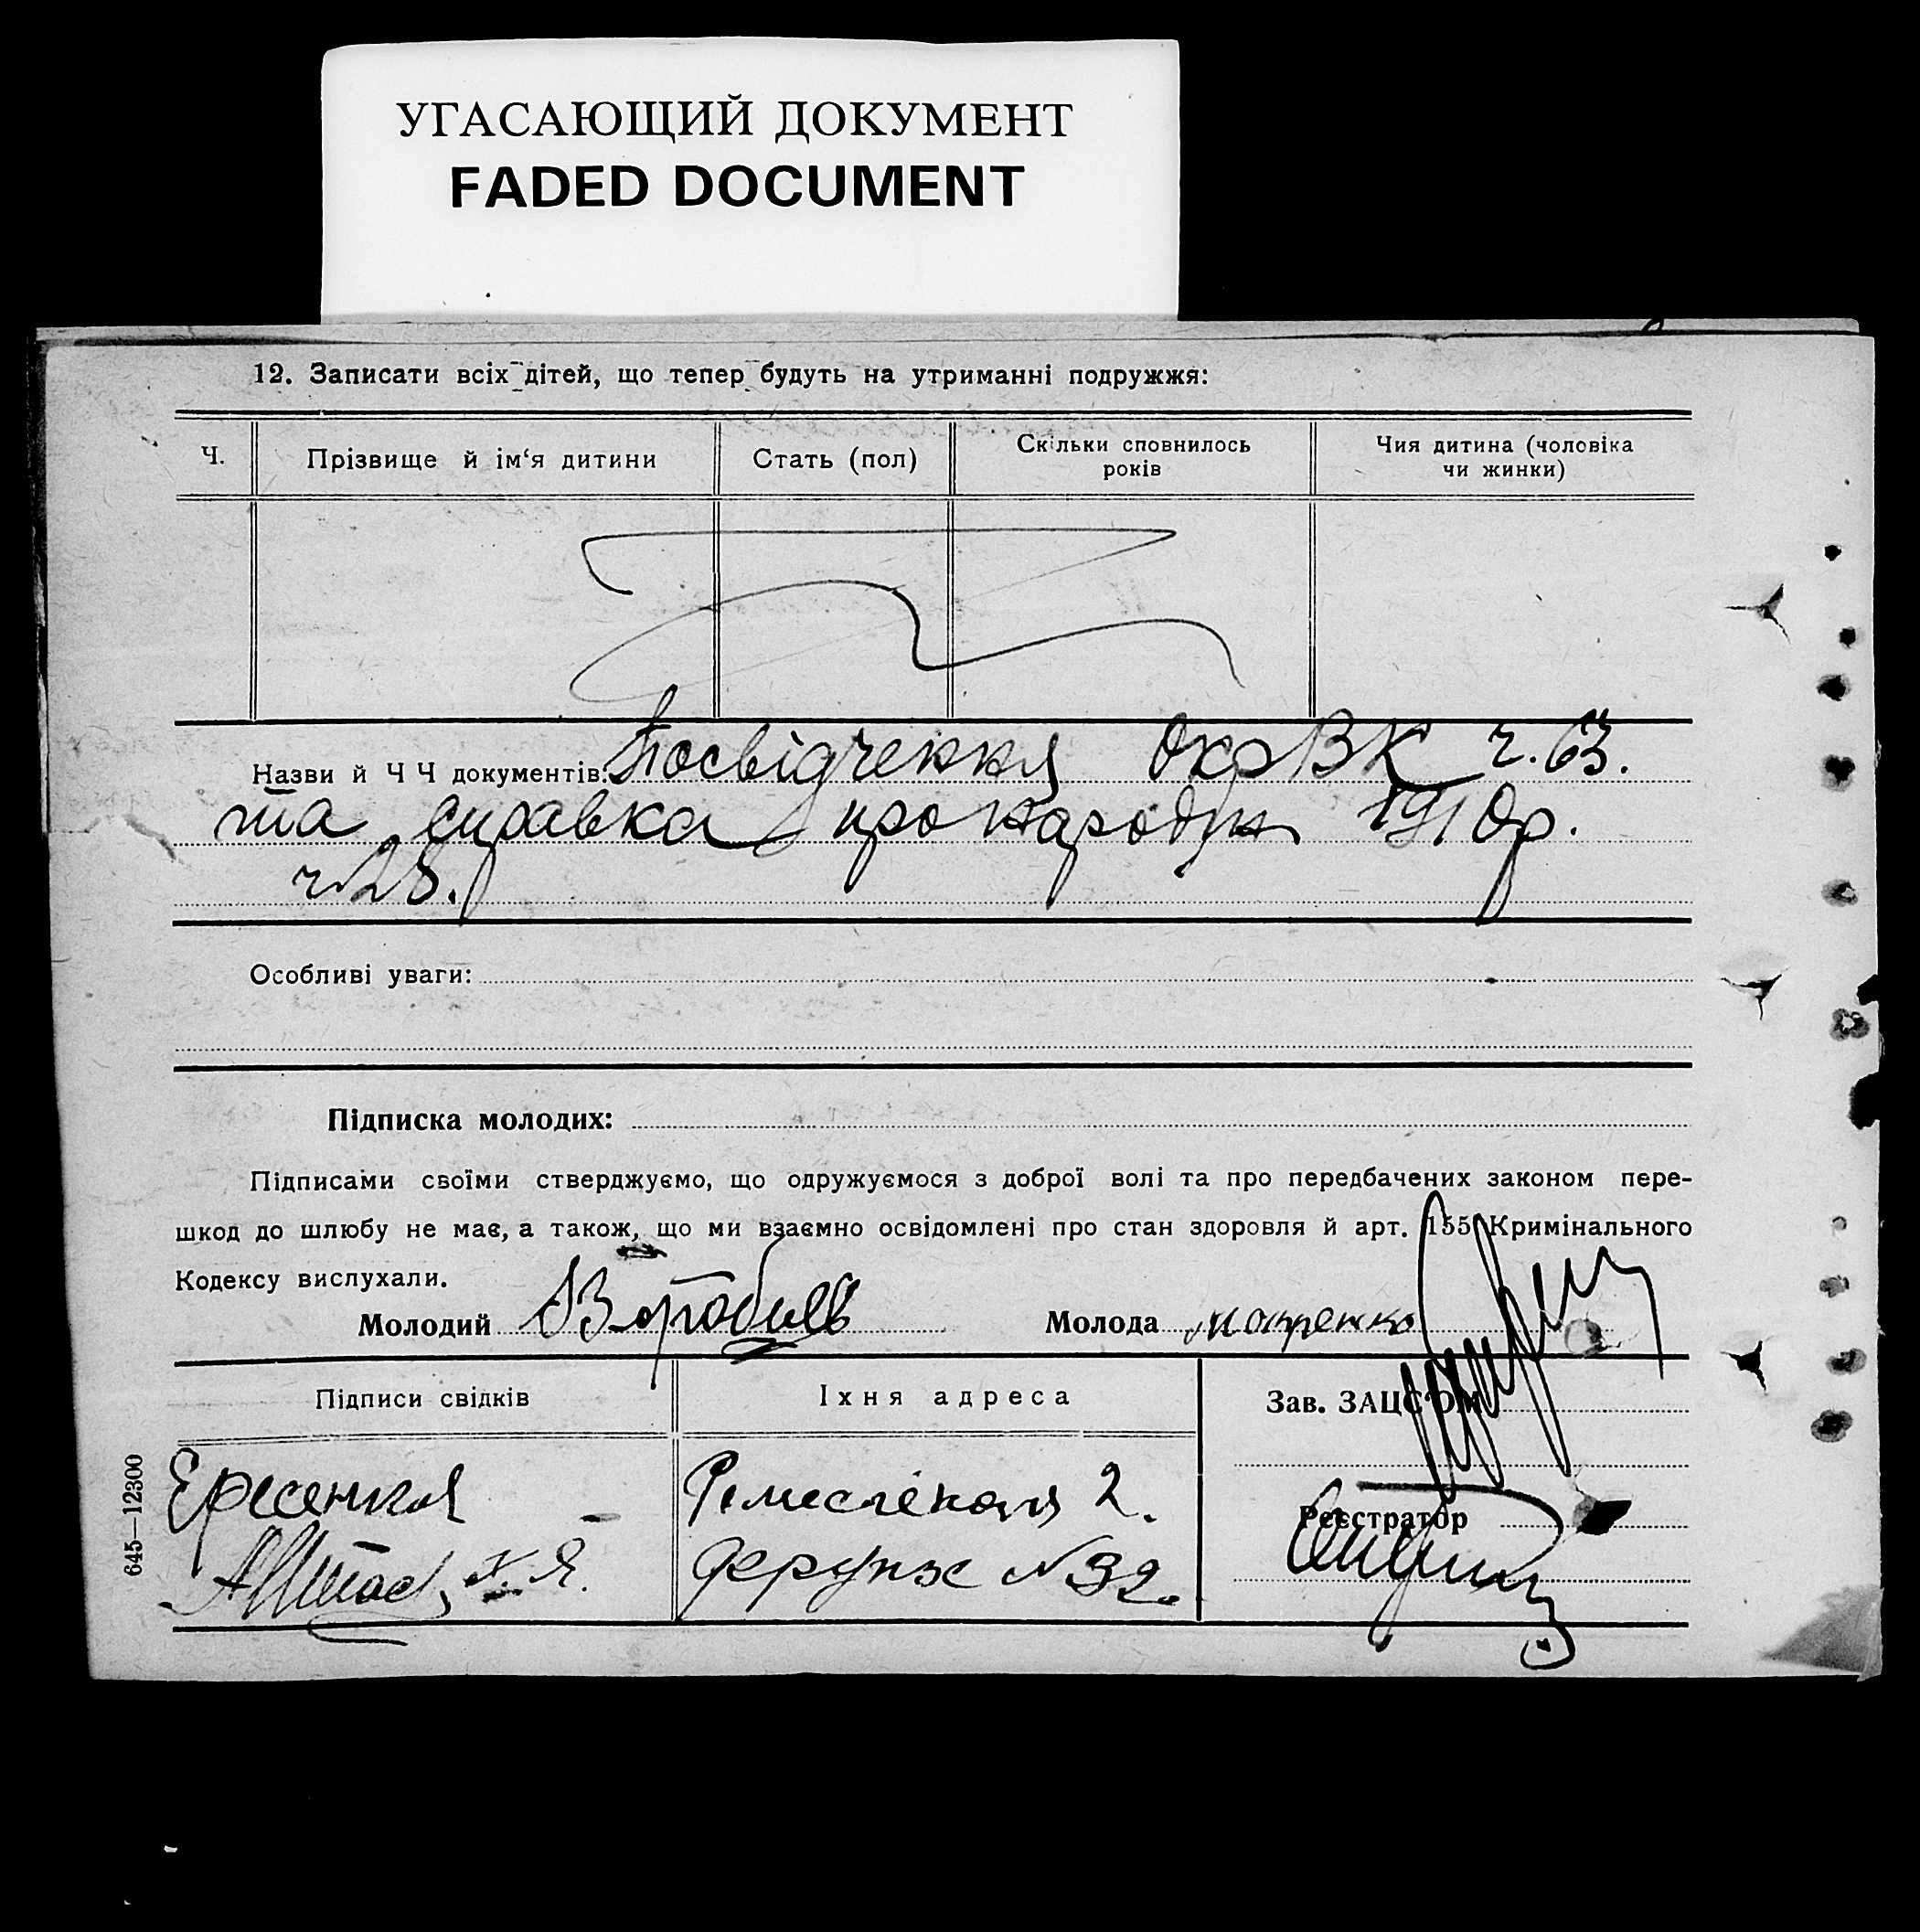 УГАСАЮЩИЙ ДОКУМЕНТ
FADED DOCUMENT
12. Записати всіх дітей, що тепер будуть на утриманні подружжя:
Ч.
Прізвище й ім‘я дитини
Стать (пол)
Скільки сповнилось
років
Чия дитина (чоловіка
чи жинки)
Назви й Ч Ч документів: Посвідчення ОкрВК ч. 63.
та справка про народжен 1910р.
ч 28.
Особливі уваги:
Підписка молодих:
Підписами своїми стверджуємо, що одружуємося з доброї волі та про передбачених законом пере-
шкод до шлюбу не має, а також, що ми взаємно освідомлені про стан здоровля й арт. 155 Кримінального
Кодексу вислухали.
Молодий
Молода
Підписи свідків
Їхня адреса
Зав. ЗАЦС‘ОМ
Ремеслёная 2.
Реєстратор
Фрунзе №32.
645—12300